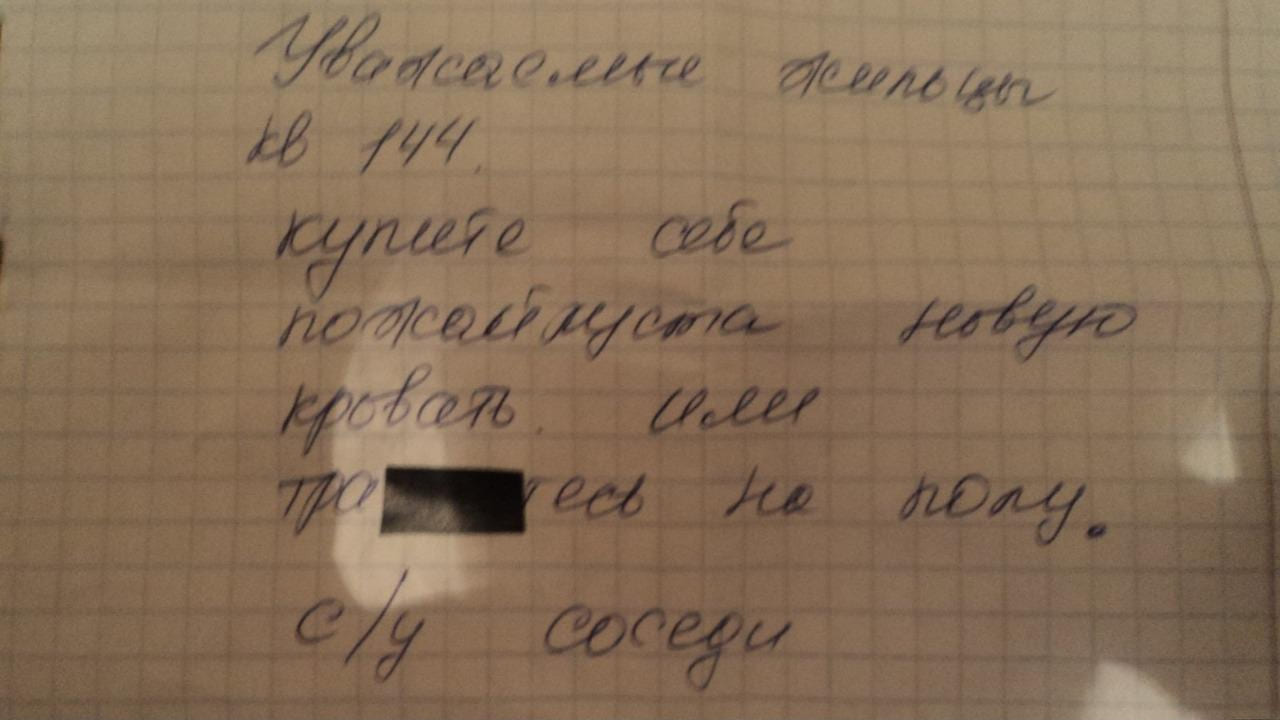 Уважаемые жильцы
кв 144.
купите себе
пожайлуста новую
кровать. или
тра тесь на полу.
с/у соседи